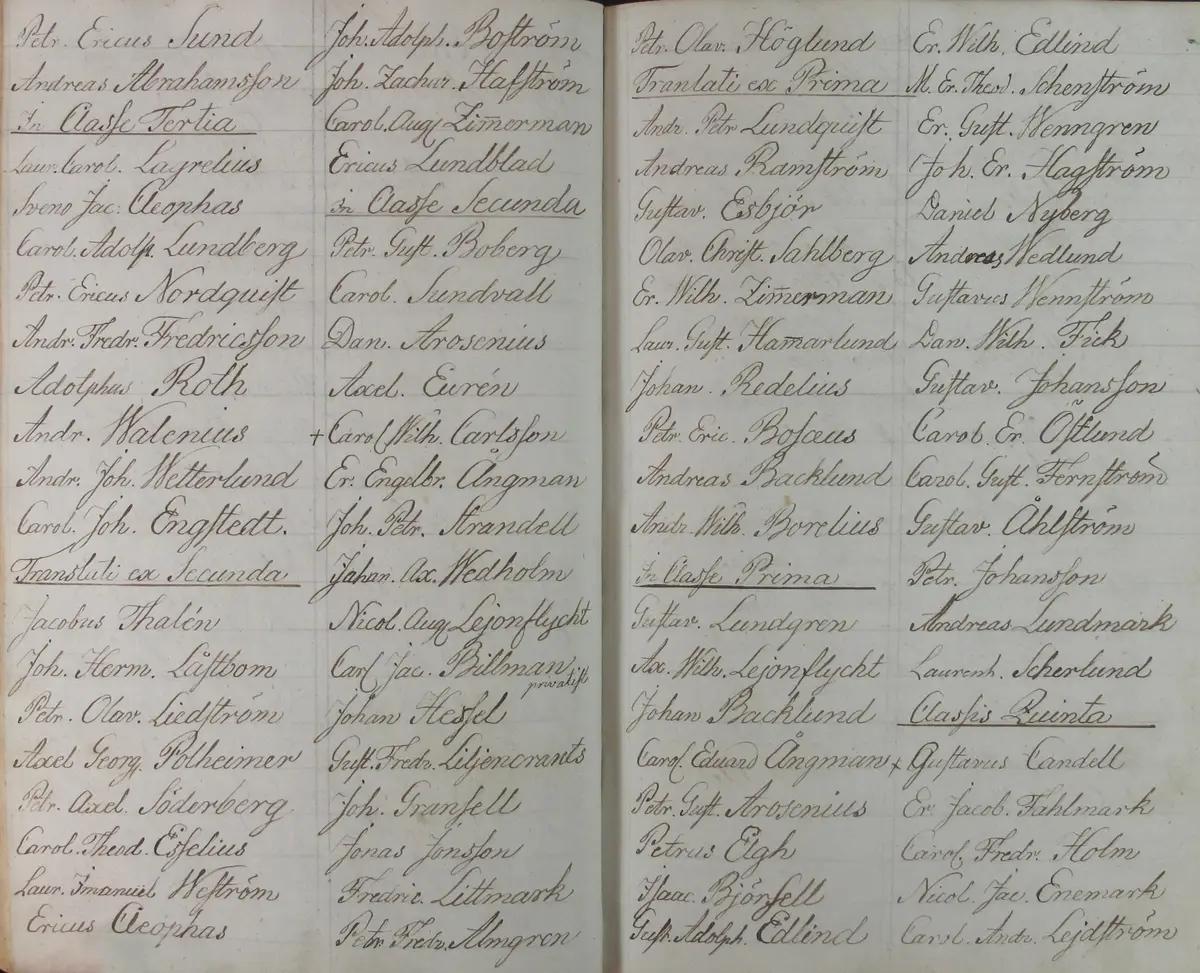 Petr. Ericus Sund
Andreas Abrahamsson
In Classe Tertia
Laur. Carol. Lagrelius
Sveno Jac: Cleophas
Carol. Adolp. Lundberg
Petr. Ericus Nordquist
Andr. Fredr. Fredricsson
Adolphus Roth
Andr. Walenius
Andr. Joh. Wetterlund
Carol. Joh. Engstedt.
Translati ex Secunda
Jacobus Thalén
Joh. Herm. Låstbom
Petr. Olav. Liedström
Axel Georg. Polheimer
Petr. Axel. Söderberg
Carol. Theod. Esselius
Laur. Imanuel Weström
Ericus Cleophas
Joh. Adolph. Boström
Joh. Zachar. Hafström
Carol. Aug. Zim̅erman
Ericus Lundblad
In Classe Secunda
Petr. Gust. Boberg
Carol. Sundvall
Dan. Arosenius
Axel. Eurén
+ Carol Wilh. Carlsson
Er. Engelbr. Ångman
Joh. Petr. Strandell
Johan. Ax. Wedholm
Nicol. Aug. Lejonflycht
Carl Jac. Billman
privatist
Johan Hessel
Gust. Fredr. Liljencrants
Joh. Gransell
Jonas Jonsson
Fredric. Littmark
Petr. Fredr. Almgren
Petr. Olav. Höglund
Tranlati ex Prima
Andr. Petr Lundquist
Andreas Ramström
Gustav. Esbjör
Olav. Christ. Sahlberg
Er. Wilh. Zim̅erman
Laur. Gust. Ham̅arlund
Johan. Redelius
Petr. Eric. Bosæus
Andreas Backlund
Andr. Wilh. Borelius
In Classe Prima
Gustav. Lundgren
Ax. Wilh. Lejonflycht
Johan Backlund
Carol. Eduard Ångman
Petr. Gust. Arosenius
Petrus Elgh
Isaac Björsell
Gust. Adolph. Edlind
Er. Wilh. Edlind
M. Er. Theod. Schenström
Er. Gust. Wenngren
Joh. Er. Hagström
Daniel Nyberg
Andreas Wedlund
Gustavus Wennström
Dan. Wilh. Fick
Gustav. Johansson
Carol. Er. Östlund
Carol. Gust. Fernström
Gustav. Åhlström
Petr. Johansson
Andreas Lundmark
Laurent. Scherlund
Classis Quinta
+ Gustavus Candell
Er. Jacob. Fahlmark
Carol. Fredr. Holm
Nicol. Jac. Enemark
Carol. Andr. Lejdström